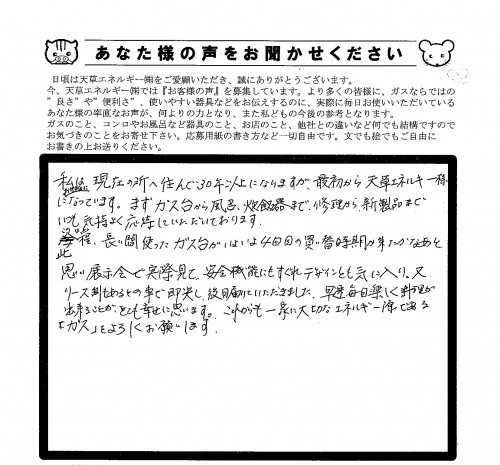 あなた様の声をお聞かせください
日頃は天草エネルギー㈱をご愛顧いただき、誠にありがとうございます。
今、天草エネルギー㈱では『お客様の声』を募集しています。より多くの皆様に、ガスならではの
”良さ”や”便利さ”、使いやすい器具などをお伝えするのに、実際に毎日お使いいただいている
あなた様の率直なお声が、何よりの力となり、また私どもの今後の参考となります。
ガスのこと、コンロやお風呂など器具のこと、お店のこと、他社との違いなど何でも結構ですので
お気づきのことをお寄せ下さい。応募用紙の書き方など一切自由です。文でも絵でもご自由に
お書きの上お送りください。
私は現在の所へ住んで30年以上になりますが、最初から天草エネルギー様
になっています。まずガス台から風呂、炊飯器まで、修理から新製品まで
いつも気持よく応待していただいております。
此程、長い間使ったガス台がいよいよ4回目の買い替時期が来たかなあと
思い展示会で実際見て、安全機能にもすぐれデザインとも気に入り、又
リース制もあるとの事で即決し、後日届けていただきました。早速毎日楽しく料理が
出来ることが、とても幸せに思います。これからも一番に大切なエネルギー源である
「ガス」をよろしくお願いします。